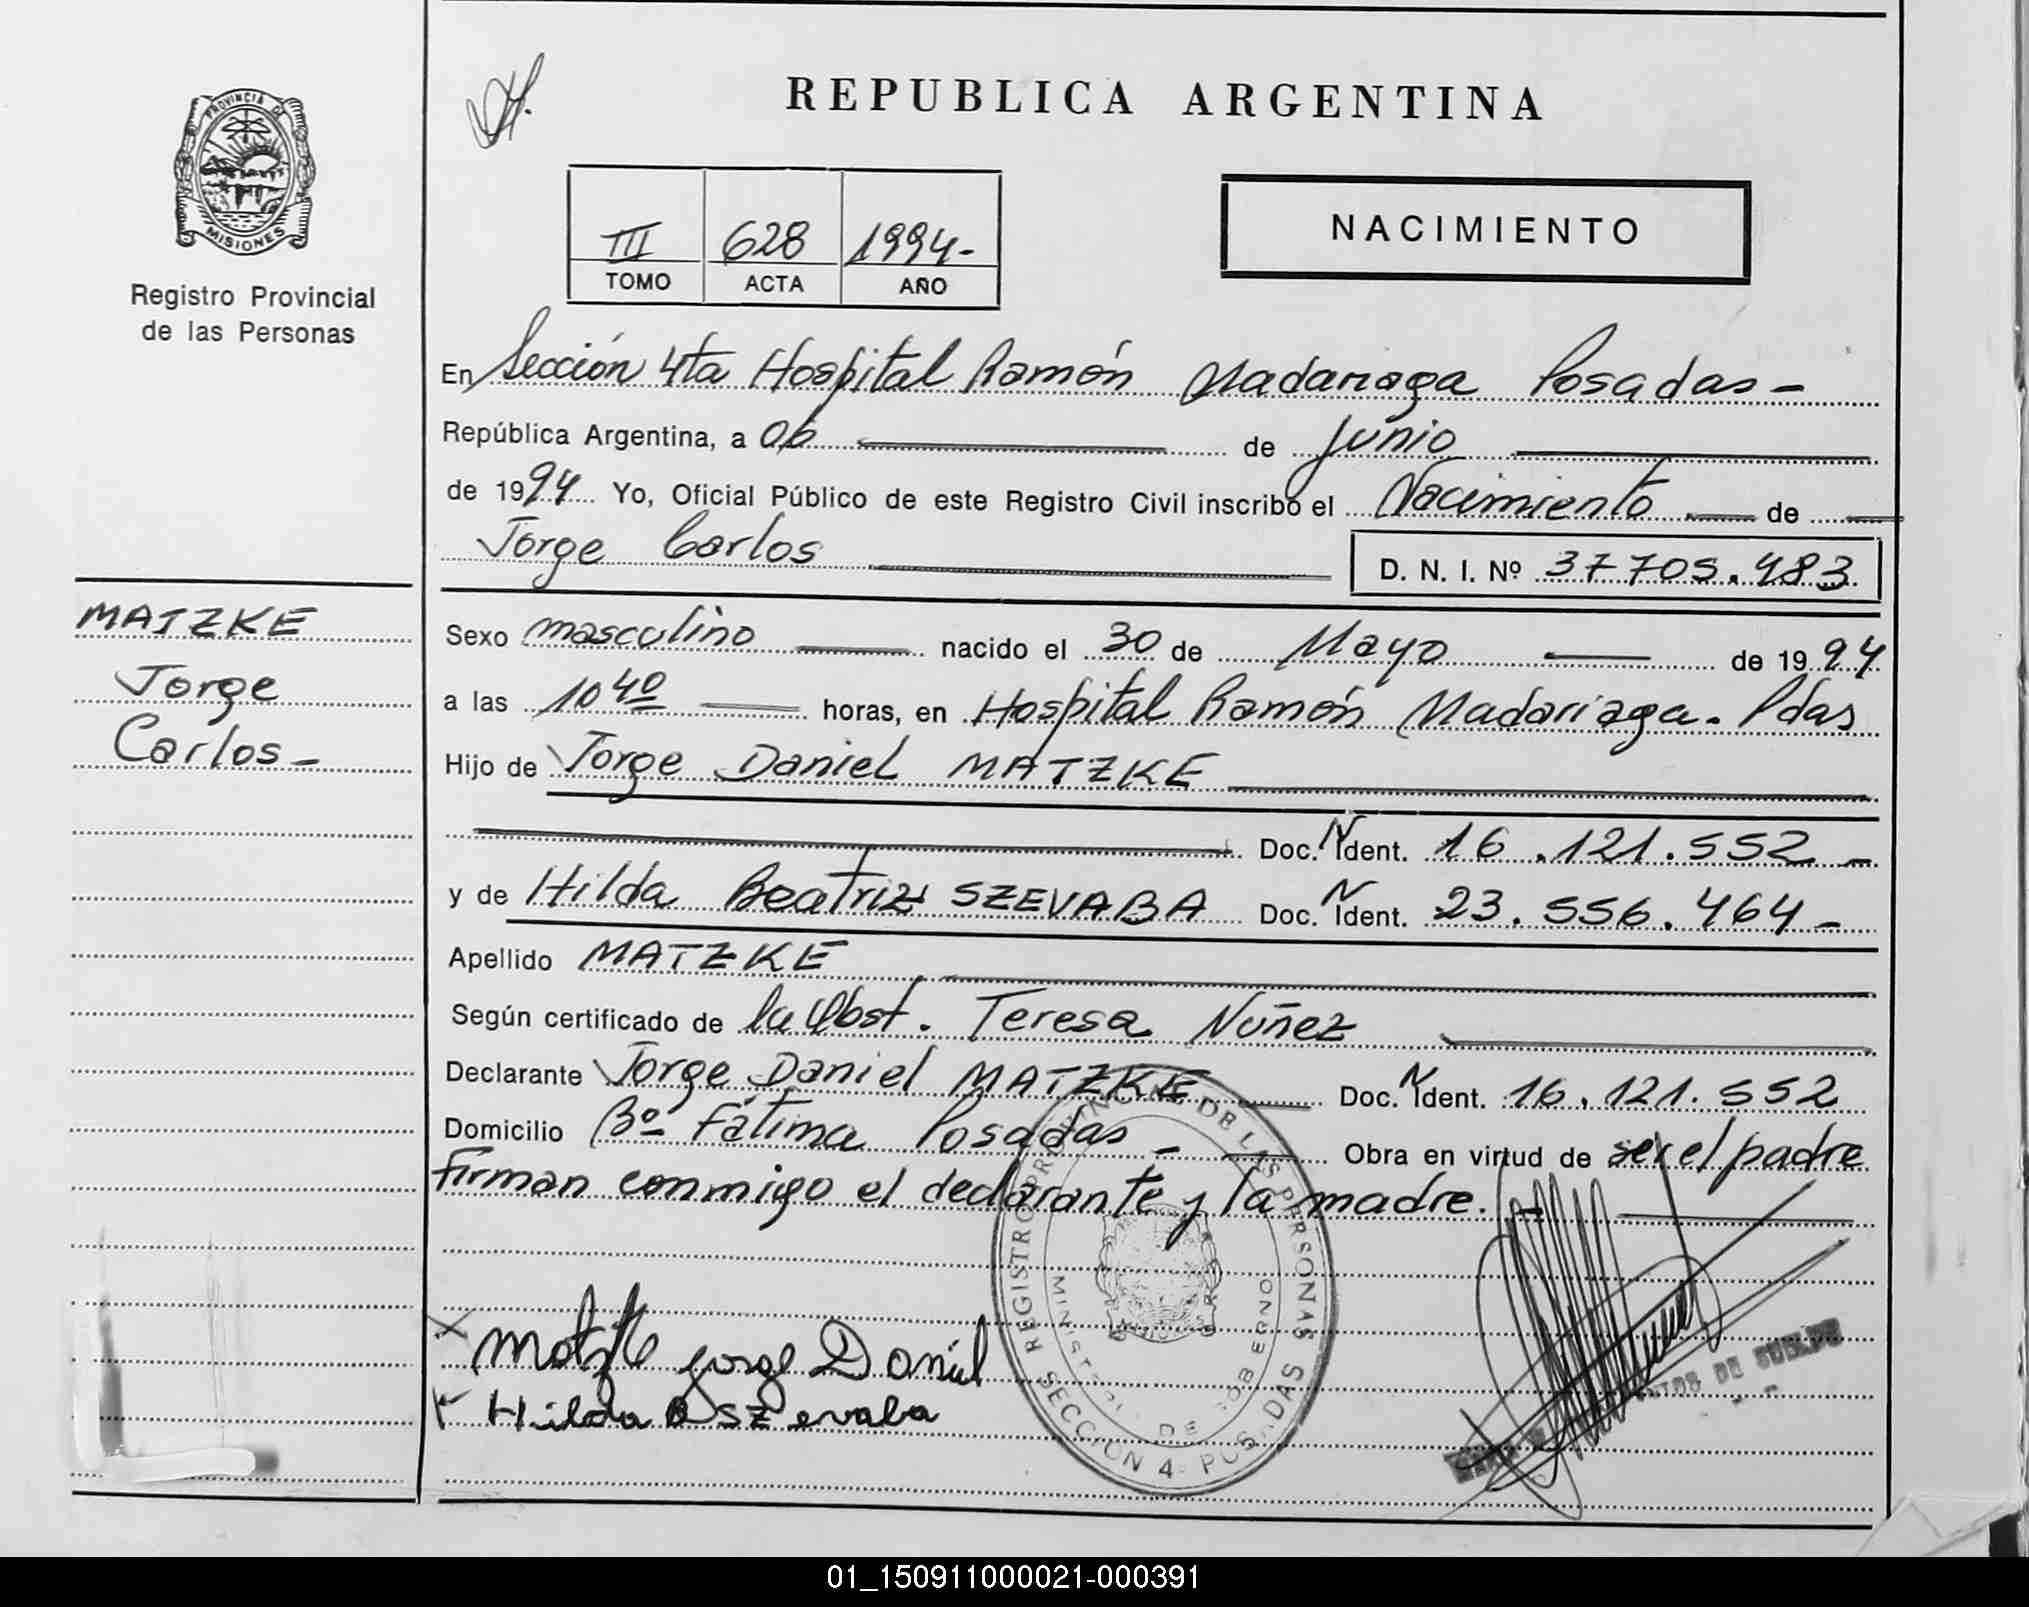 REPUBLICA ARGENTINA
PROVINCIA DE
MISIONES
Registro Provincial
de las Personas
III 628 1994-
TOMO ACTA AÑO
NACIMIENTO
En Sección 4ta Hospital Ramón Madariaga Posadas-
República Argentina, a 06 de Junio
de 1994 Yo, Oficial Público de este Registro Civil inscribo el Nacimiento de
Jorge Carlos D. N. I. Nº 37705.483
MATZKE
Jorge
Carlos-
Sexo masculino nacido el 30 de Mayo de 1994
a las 10 40 horas, en Hospital Ramón Madariaga. Pdas
Hijo de Jorge Daniel MATZKE
Doc. N Ident. 16.121.552-
y de Hilda Beatriz SZEVABA Doc. N Ident. 23.556.464-
Apellido MATZKE
Según certificado de la Obst. Teresa Núñez
Declarante Jorge Daniel MATZKE Doc. N Ident. 16.121.552
Domicilio Bº Fátima Posadas- Obra en virtud de ser el padre
Firman conmigo el declarante y la madre.-
REGISTRO PROVINCIAL DE LAS PERSONAS
MINISTERIO DE GOBIERNO
SECCION 4 POSADAS
x Matzke Jorge Daniel
x Hilda B Szevaba
DE
01_150911000021-000391